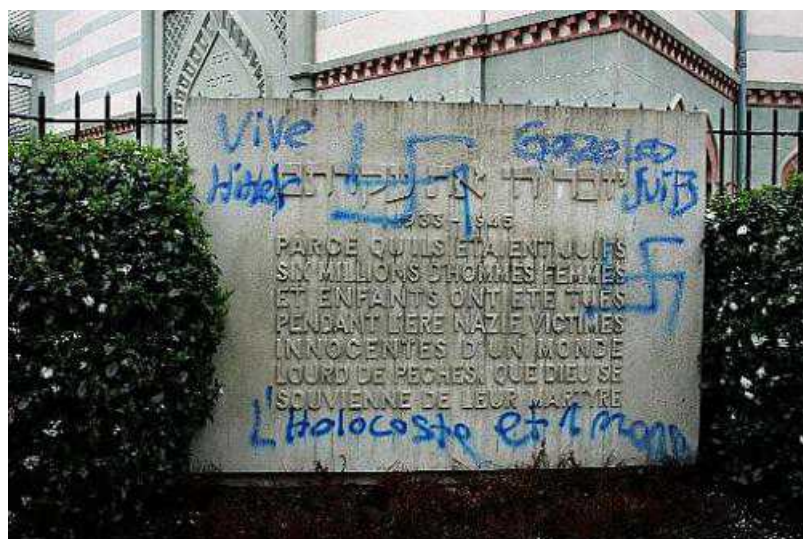 Vive
Hitler
את
1933-1945
PARCE QU'ILS ETAIENT JUIFS
SIX MILLIONS D'HOMMES FEMMES
ET ENFANTS ONT ETE TUES
PENDANT L'ERE NAZIE VICTIMES
INNOCENTES D'UN MONDE
LOURD DE PECHES, QUE DIEU SE
SOUVIENNE DE LEUR MARTYRE
L'Holocoste et 1